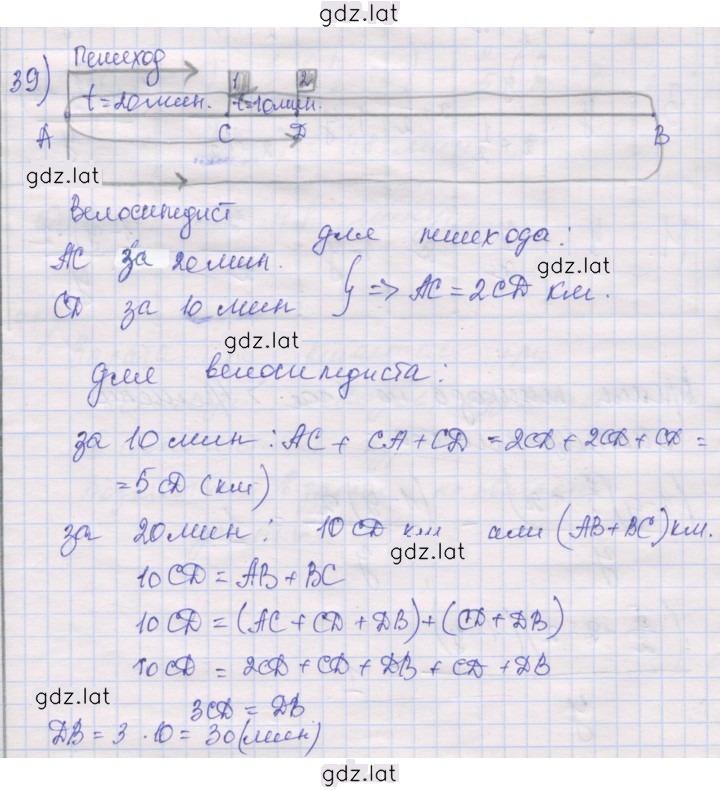 gdz.lat
39)
Пешеход
1 2
t=20мин. t=10мин.
A C D B
gdz.lat
Велосипедист
для пешехода:
AC за 20мин.
gdz.lat
CD за 10 мин } => AC = 2CD км.
gdz.lat
для велосипедиста:
за 10 мин: AC + CA + CD = 2CD + 2CD + CD =
= 5CD (км)
за 20мин: 10CD км или (AB+BC) км.
gdz.lat
10CD = AB + BC
10CD = (AC + CD + DB) + (CD + DB)
10CD = 2CD + CD + DB + CD + DB
gdz.lat
3CD = DB
DB = 3 · 10 = 30 (мин)
gdz.lat